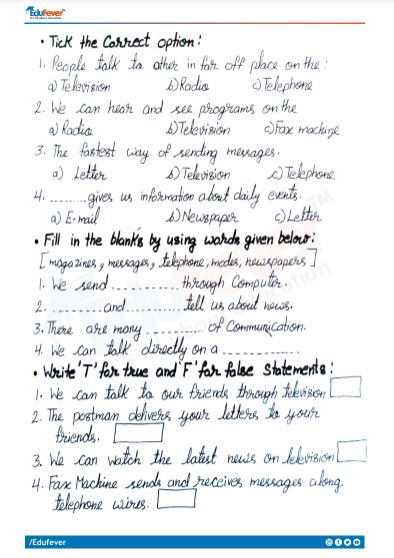 EduFever
• Tick the Correct option:
1. People talk to other in far off place on the:
a) Television b) Radio c) Telephone
2. We can hear and see programs on the
a) Radio b) Television c) Fax machine
3. The fastest way of sending messages.
a) Letter b) Television c) Telephone
4. ......... gives us information about daily events.
a) E-mail b) Newspaper c) Letter
• Fill in the blank's by using words given below:
[magazines, messages, telephone, modes, newspapers]
1. We send ............ through Computer.
2. .......... and ............ tell us about news.
3. There are many ............ of Communication.
4. We can talk directly on a ...............
• Write 'T' for true and 'F' for false statements:
1. We can talk to our friends through television
2. The postman delivers your letters to your
friends.
3. We can watch the latest news on television
4. Fax Machine sends and receives messages along
telephone wires.
/Edufever